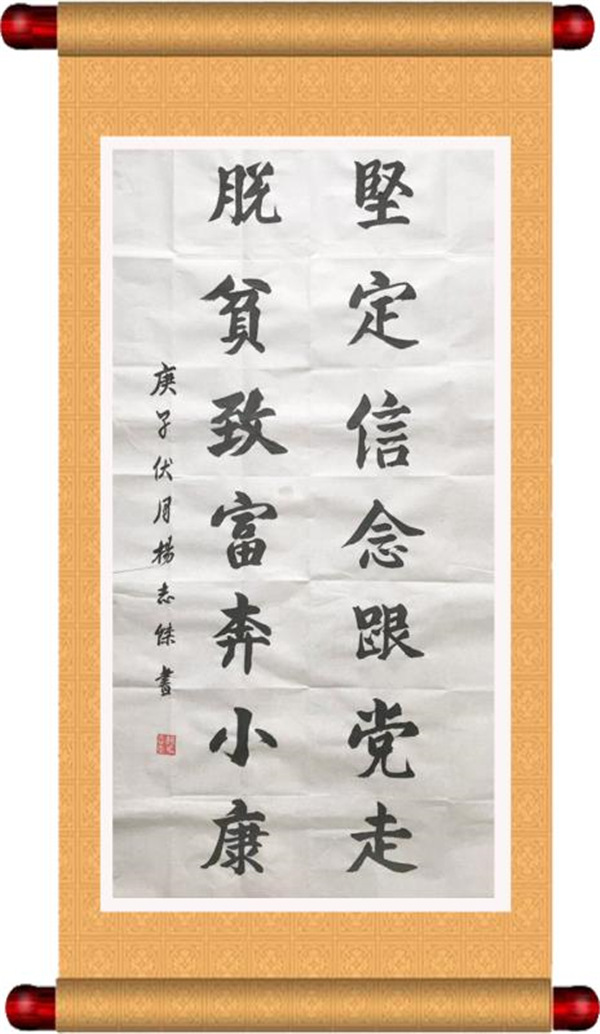 堅定信念跟党走
脱貧致富奔小康
庚子伏月楊志傑書